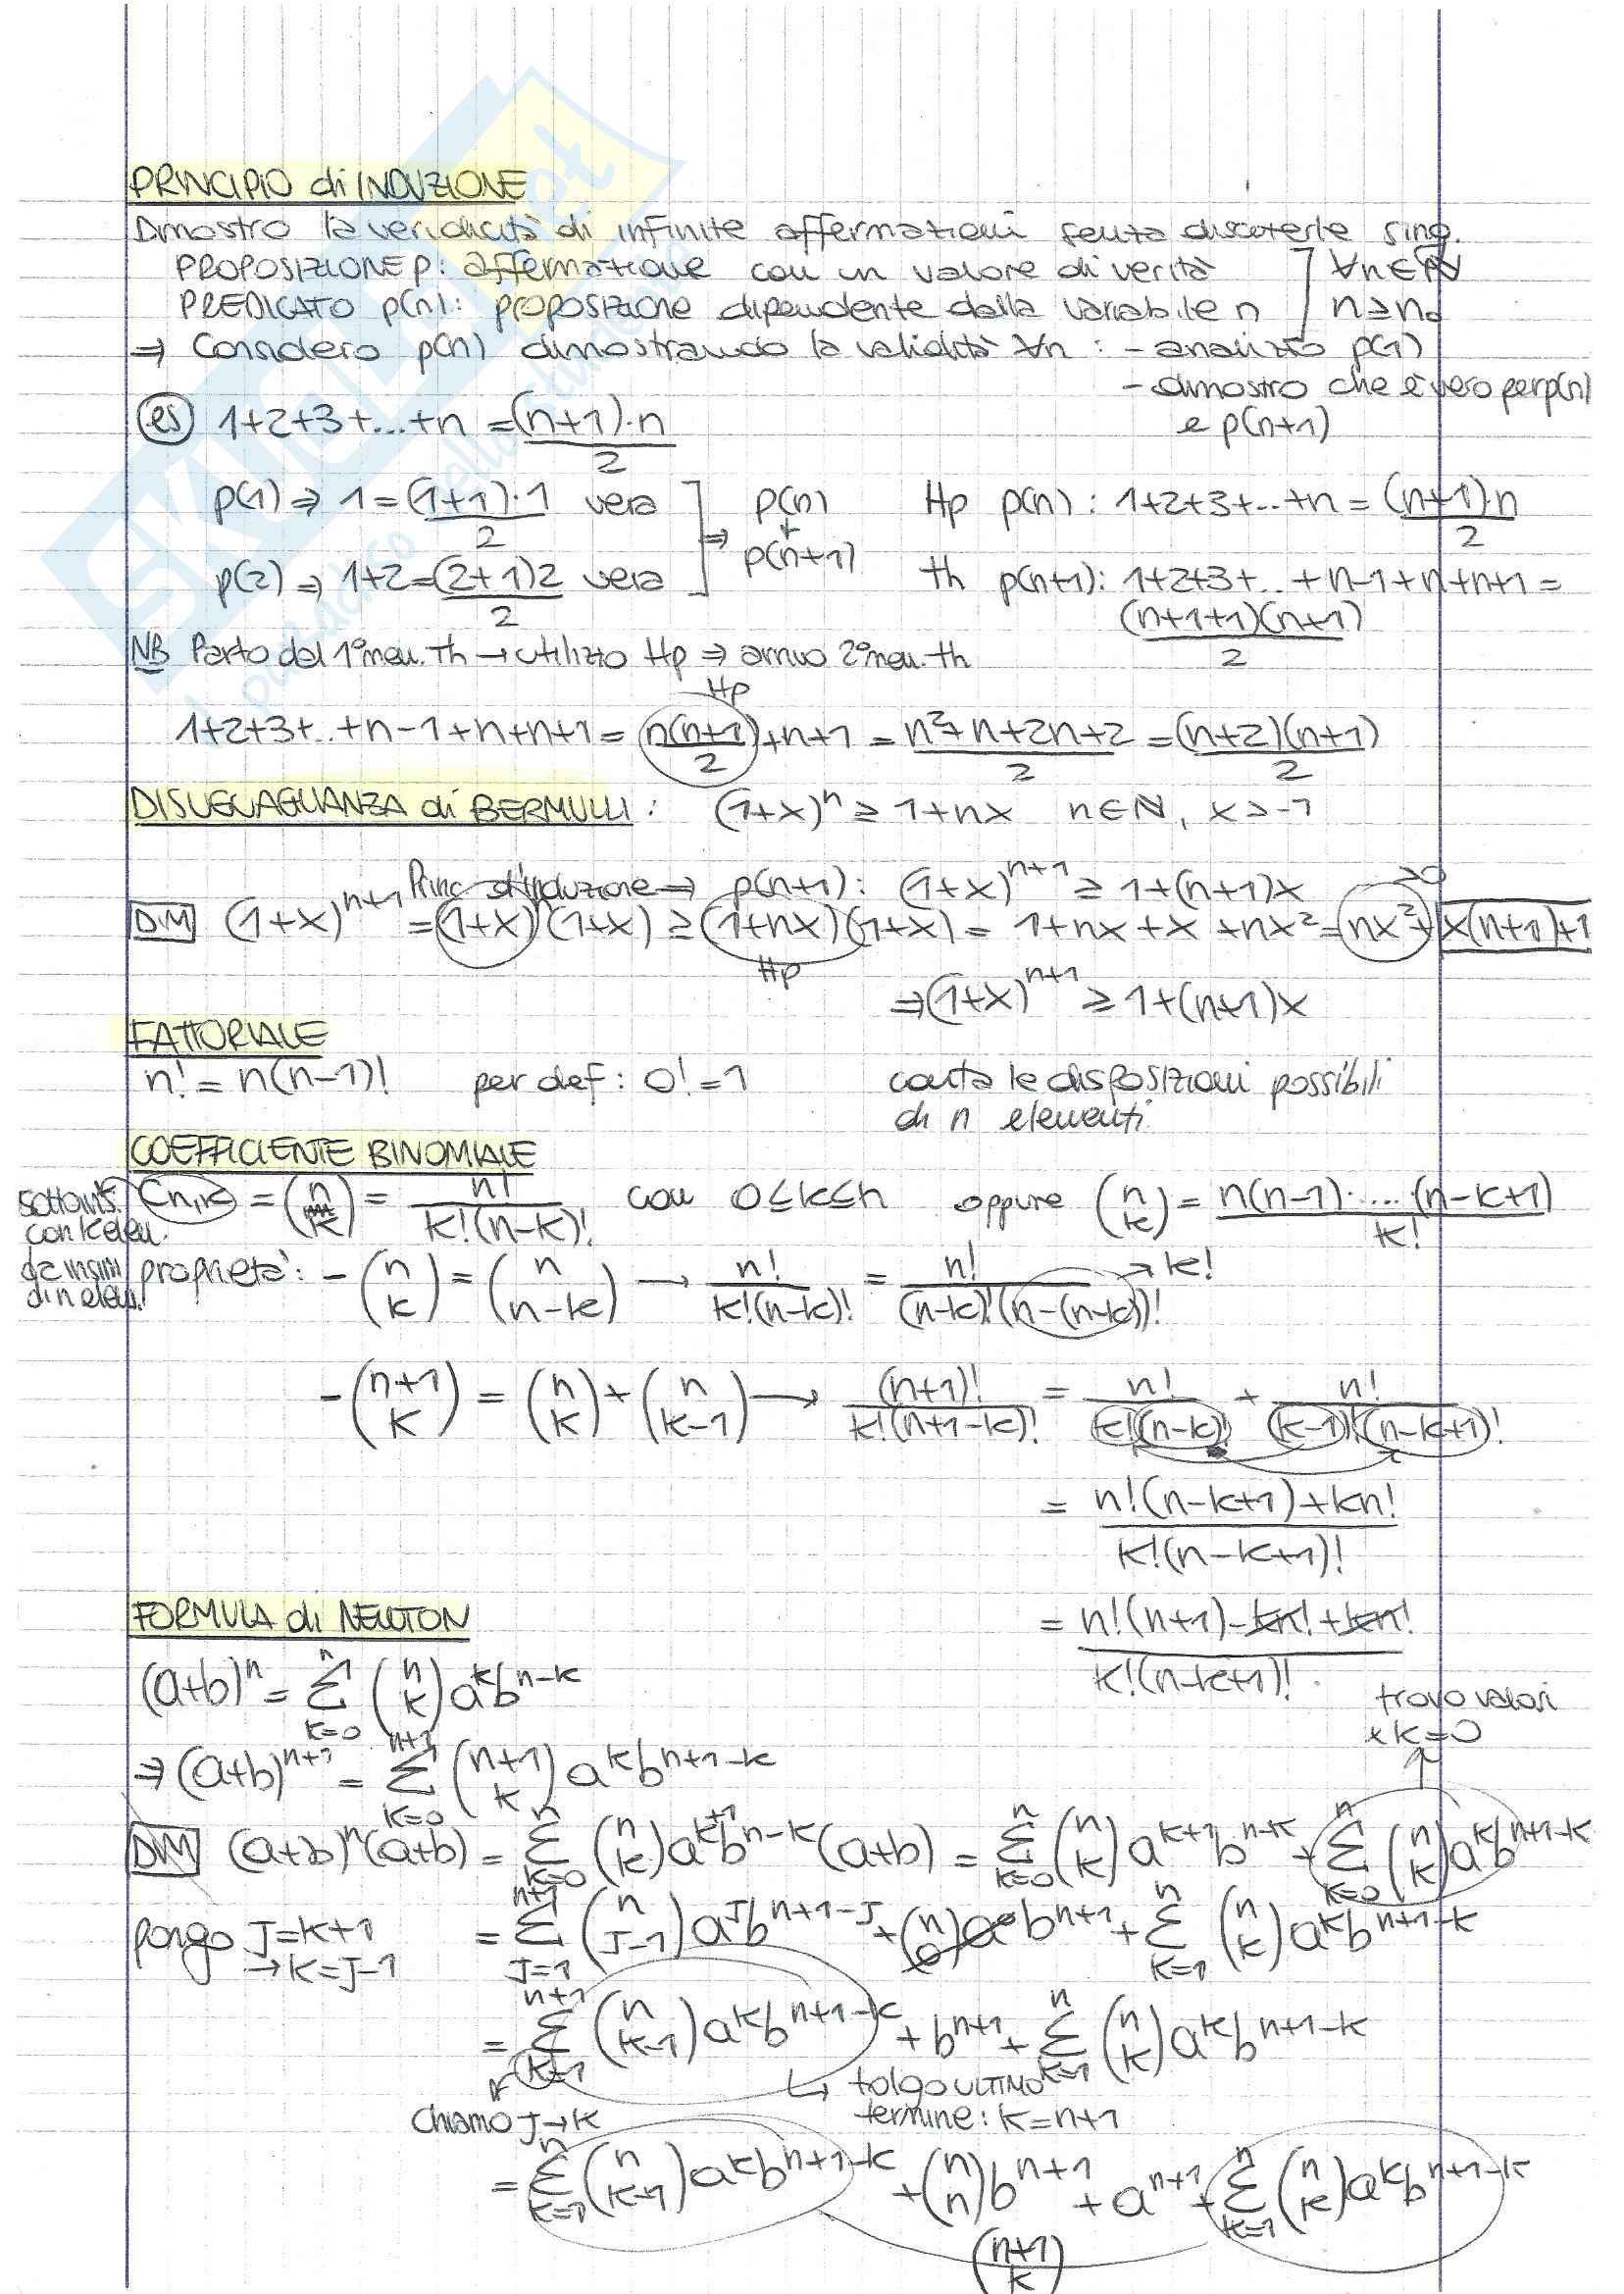 PRINCIPIO di INDUZIONE
Dimostro la veridicità di infinite affermazioni senza discuterle sing.
PROPOSIZIONE P: affermazione con un valore di verità ∀n∈ℕ
PREDICATO p(n): proposizione dipendente dalla variabile n n≥n₀
⇒ Considero p(n) dimostrando la validità ∀n : - analizzo p(1)
- dimostro che è vero per p(n)
e p(n+1)
es 1+2+3+...+n = (n+1)·n / 2
p(1) ⇒ 1 = (1+1)·1 / 2 vera p(n) Hp p(n) : 1+2+3+...+n = (n+1)n / 2
⇒ p(n+1)
p(2) ⇒ 1+2 = (2+1)2 / 2 vera th p(n+1): 1+2+3+...+n-1+n+n+1 =
(n+1+1)(n+1) / 2
NB Parto dal 1° mem. Th → utilizzo Hp ⇒ arrivo 2° mem. th
Hp
1+2+3+..+n-1+n+n+1 = n(n+1)/2 + n+1 = n²+n+2n+2 / 2 = (n+2)(n+1) / 2
DISUGUAGLIANZA di BERMULLI : (1+x)ⁿ ≥ 1+nx n∈ℕ, x>-1
Princ. d'induzione → p(n+1): (1+x)ⁿ⁺¹ ≥ 1+(n+1)x >0
DIM (1+x)ⁿ⁺¹ = (1+x)ⁿ(1+x) ≥ (1+nx)(1+x) = 1+nx+x+nx² = nx² + x(n+1)+1
Hp
⇒ (1+x)ⁿ⁺¹ ≥ 1+(n+1)x
FATTORIALE
n! = n(n-1)! per def : 0! = 1 conta le disposizioni possibili
di n elementi
COEFFICIENTE BINOMIALE
sottoins. con k elem. da insiemi di n elem.
Cn,k = (n k) = n! / k!(n-k)! con 0≤k≤n oppure (n k) = n(n-1)·....·(n-k+1) / k!
proprietà: - (n k) = (n n-k) → n! / k!(n-k)! = n! / (n-k)!(n-(n-k))! → k!
- (n+1 k) = (n k) + (n k-1) → (n+1)! / k!(n+1-k)! = n! / k!(n-k)! + n! / (k-1)!(n-k+1)!
= n!(n-k+1)+kn! / k!(n-k+1)!
FORMULA di NEWTON
= n!(n+1)-kn!+kn! / k!(n-k+1)!
(a+b)ⁿ = Σ k=0 n (n k) aᵏbⁿ⁻ᵏ
trovo valori
x k=0
⇒ (a+b)ⁿ⁺¹ = Σ k=0 n+1 (n+1 k) aᵏbⁿ⁺¹⁻ᵏ
DIM (a+b)ⁿ(a+b) = Σ k=0 n (n k) aᵏ⁺¹bⁿ⁻ᵏ(a+b) = Σ k=0 n (n k) aᵏ⁺¹bⁿ⁻ᵏ + Σ k=0 n (n k) aᵏbⁿ⁺¹⁻ᵏ
pongo J=k+1 = Σ J=1 n+1 (n J-1) aᴶbⁿ⁺¹⁻ᴶ + (n 0) a⁰ bⁿ⁺¹ + Σ k=1 n (n k) aᵏbⁿ⁺¹⁻ᵏ
→ k=J-1
= Σ k=1 n+1 (n k-1) aᵏbⁿ⁺¹⁻ᵏ + bⁿ⁺¹ + Σ k=1 n (n k) aᵏbⁿ⁺¹⁻ᵏ
↳ tolgo ULTIMO
chiamo J→k termine: k=n+1
= Σ k=1 n (n k-1) aᵏbⁿ⁺¹⁻ᵏ + (n n) bⁿ⁺¹ + aⁿ⁺¹ + Σ k=1 n (n k) aᵏbⁿ⁺¹⁻ᵏ
(n+1 k)